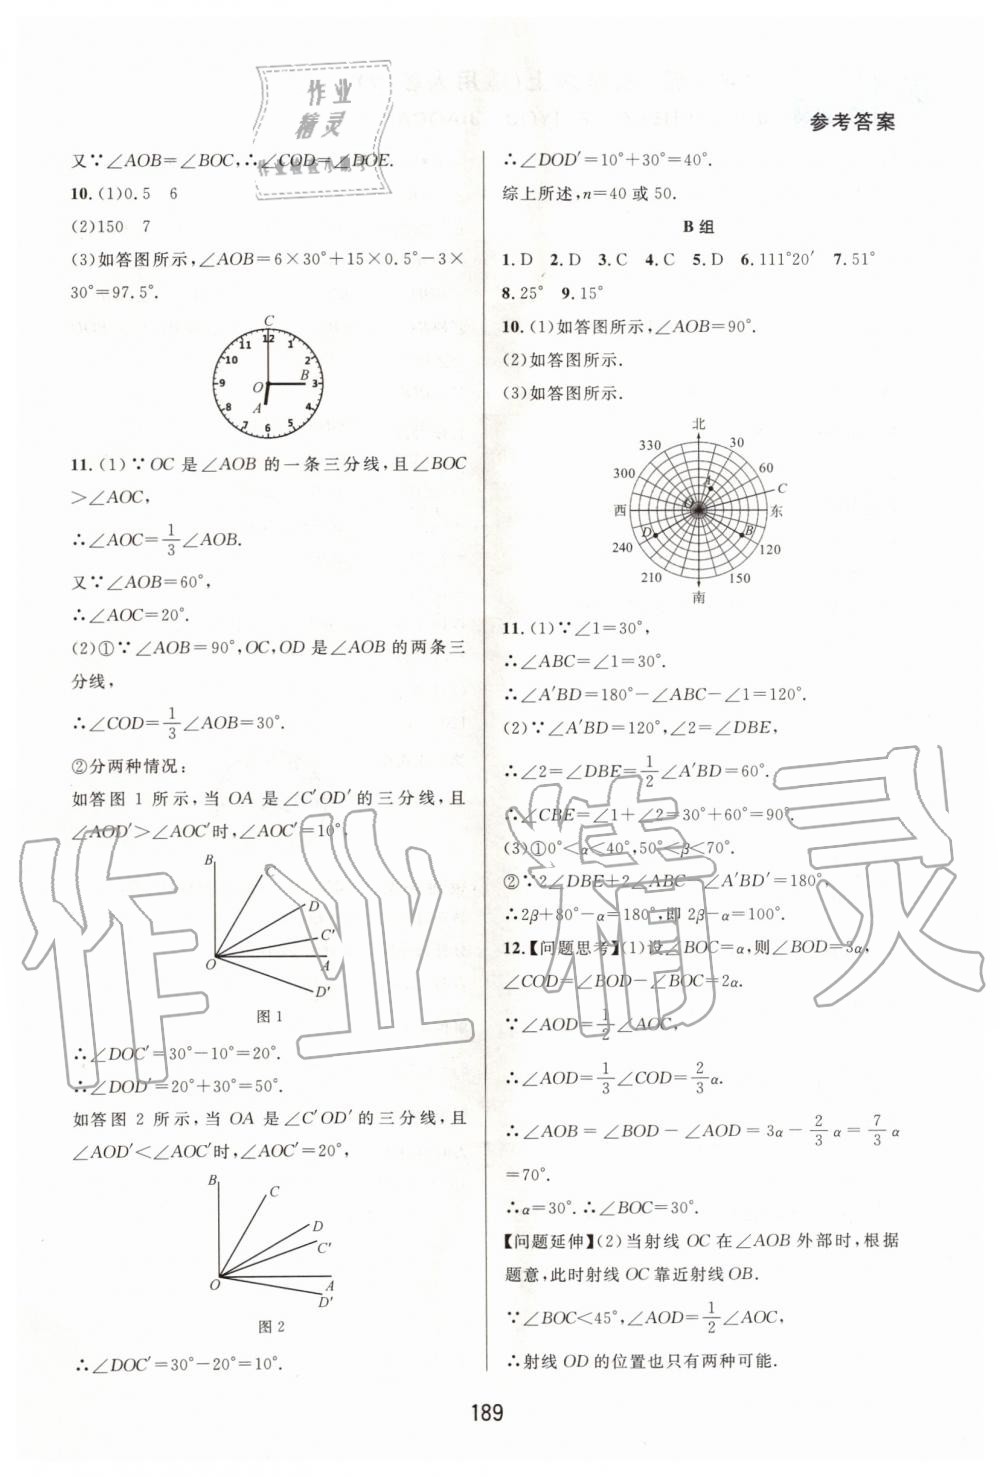 参考答案
又∵∠AOB=∠BOC,∴∠COD=∠DOE.
10.(1)0.5 6
(2)150 7
(3)如答图所示,∠AOB=6×30°+15×0.5°-3×
30°=97.5°.
C
11 12 1
10 2
9 O B 3
8 A 4
7 6 5
11.(1)∵OC 是∠AOB 的一条三分线,且∠BOC
>∠AOC,
∴∠AOC=1/3∠AOB.
又∵∠AOB=60°,
∴∠AOC=20°.
(2)①∵∠AOB=90°,OC,OD 是∠AOB 的两条三
分线,
∴∠COD=1/3∠AOB=30°.
②分两种情况:
如答图 1 所示,当 OA 是∠C′OD′的三分线,且
∠AOD′>∠AOC′时,∠AOC′=10°,
B
C
D
C′
O A
D′
图 1
∴∠DOC′=30°-10°=20°.
∴∠DOD′=20°+30°=50°.
如答图 2 所示,当 OA 是∠C′OD′的三分线,且
∠AOD′<∠AOC′时,∠AOC′=20°,
B
C
D
C′
O A
D′
图 2
∴∠DOC′=30°-20°=10°.
∴∠DOD′=10°+30°=40°.
综上所述,n=40 或 50.
B 组
1.D 2.D 3.C 4.C 5.D 6.111°20′ 7.51°
8.25° 9.15°
10.(1)如答图所示,∠AOB=90°.
(2)如答图所示.
(3)如答图所示.
北
330 30
300 60
A C
西 O 东
D B
240 120
210 150
南
11.(1)∵∠1=30°,
∴∠ABC=∠1=30°.
∴∠A′BD=180°-∠ABC-∠1=120°.
(2)∵∠A′BD=120°,∠2=∠DBE,
∴∠2=∠DBE=1/2∠A′BD=60°.
∴∠CBE=∠1+∠2=30°+60°=90°.
(3)①0°<α<40°,50°<β<70°.
②∵2∠DBE+2∠ABC-∠A′BD′=180°,
∴2β+80°-α=180°,即 2β-α=100°.
12.【问题思考】(1)设∠BOC=α,则∠BOD=3α,
∠COD=∠BOD-∠BOC=2α.
∵∠AOD=1/2∠AOC,
∴∠AOD=1/3∠COD=2/3α.
∴∠AOB=∠BOD-∠AOD=3α-2/3α=7/3α
=70°.
∴α=30°.∴∠BOC=30°.
【问题延伸】(2)当射线 OC 在∠AOB 外部时,根据
题意,此时射线 OC 靠近射线 OB.
∵∠BOC<45°,∠AOD=1/2∠AOC,
∴射线 OD 的位置也只有两种可能.
189
作业
精灵
作业精灵